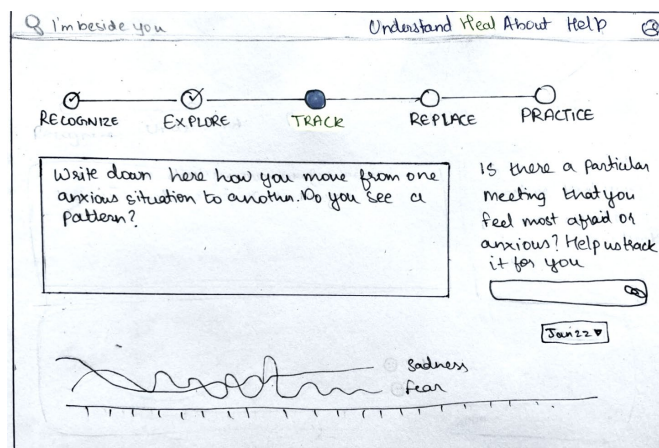 I'm beside you
Understand Heal About Help
RECOGNIZE EXPLORE TRACK REPLACE PRACTICE
Write down here how you move from one
anxious situation to another. Do you see a
pattern?
Is there a particular
meeting that you
feel most afraid or
anxious? Help us track
it for you
Jan 22
Sadness
fear